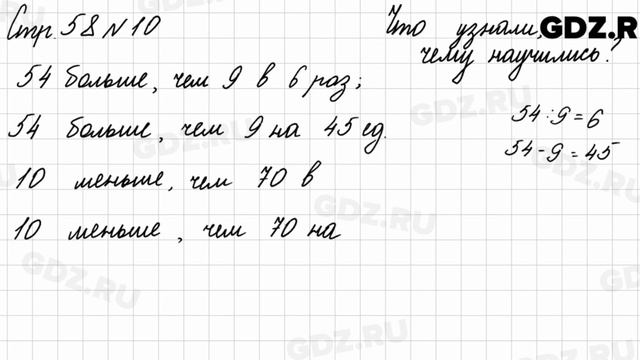 Стр. 58 № 10
Что узнали,
чему научились?
GDZ.RU
54 больше, чем 9 в 6 раз;
54 больше, чем 9 на 45 ед.
54 : 9 = 6
54 - 9 = 45
10 меньше, чем 70 в
10 меньше, чем 70 на
GDZ.RU
GDZ.RU
GDZ.RU
GDZ.RU
GDZ.RU